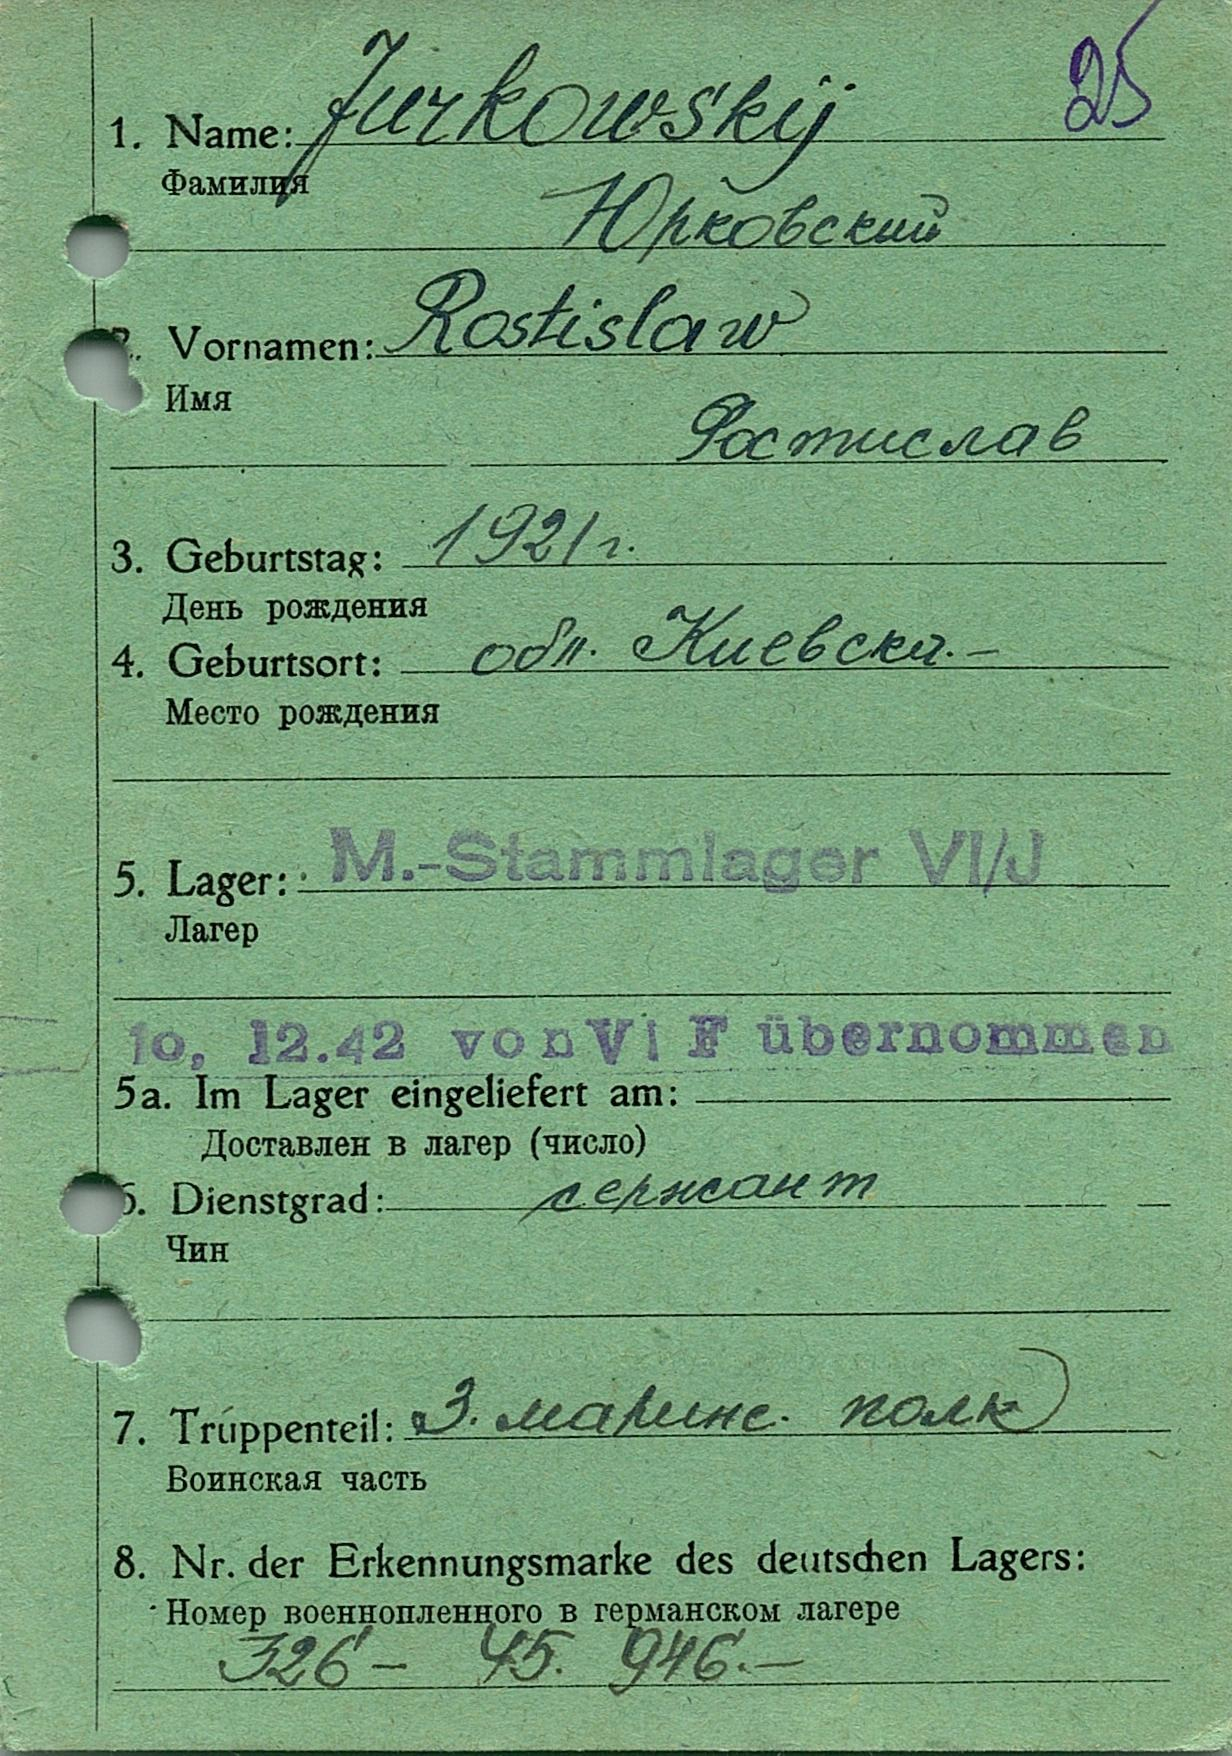 25
1. Name: Jurkowskij
Фамилия
Юрковский
2. Vornamen: Rostislaw
Имя
Ростислав
3. Geburtstag: 1921 г.
День рождения
4. Geburtsort: обл. Киевска.-
Место рождения
5. Lager: M.-Stammlager VI/J
Лагер
10, 12.42 von VI F übernommen
5a. Im Lager eingeliefert am:
Доставлен в лагер (число)
6. Dienstgrad: сержант
Чин
7. Truppenteil: 3. маринс. полк
Воинская часть
8. Nr. der Erkennungsmarke des deutschen Lagers:
Номер военнопленного в германском лагере
326 - 45. 946.-